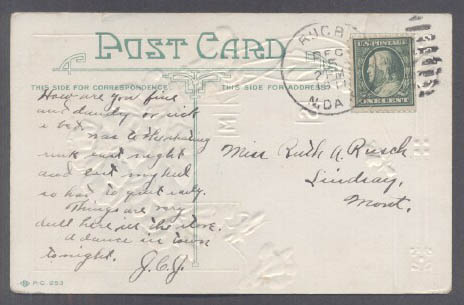 POST CARD
THIS SIDE FOR CORRESPONDENCE.
THIS SIDE FOR ADDRESS.
DEC
N. DA
U.S. POSTAGE
ONE CENT
How are you fine
and dandy or sick
a bed.
was to
last night
and last night
so had to quit early.
Things are very
dull here in the store.
A dance in town
tonight.
J.C.J.
Miss Ruth A. Rusch
Lindsay,
Mont.
P.C. 253